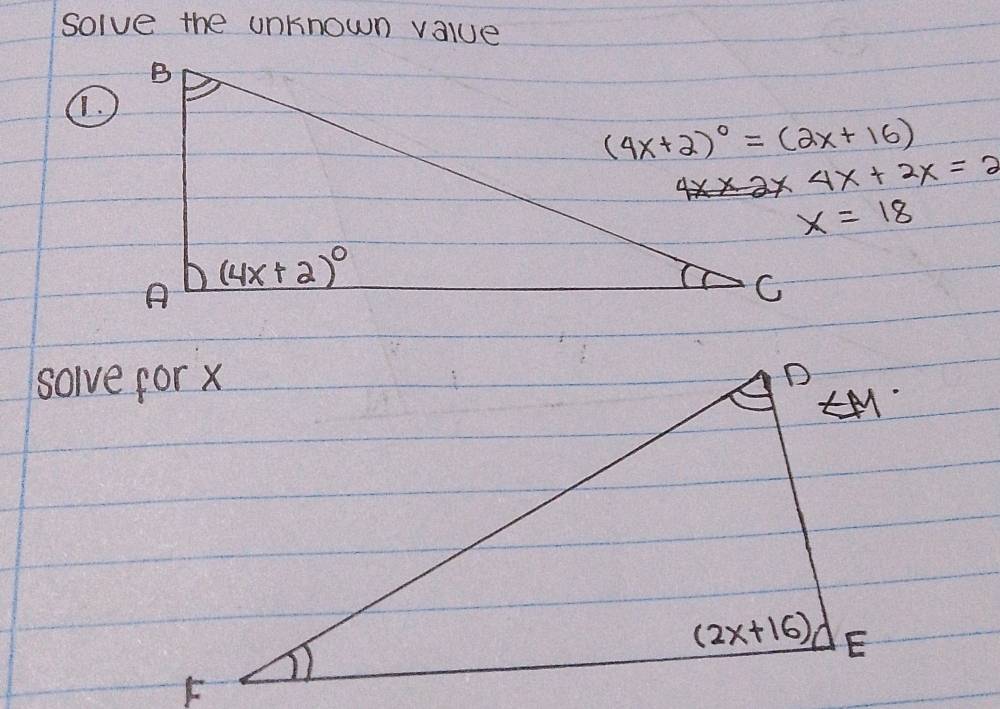 solve the unknown value
B
1.
(4x+2)° = (2x+16)
4x + 2x = 2
x = 18
(4x+2)°
A
C
solve for x
D
(2x+16)
E
F